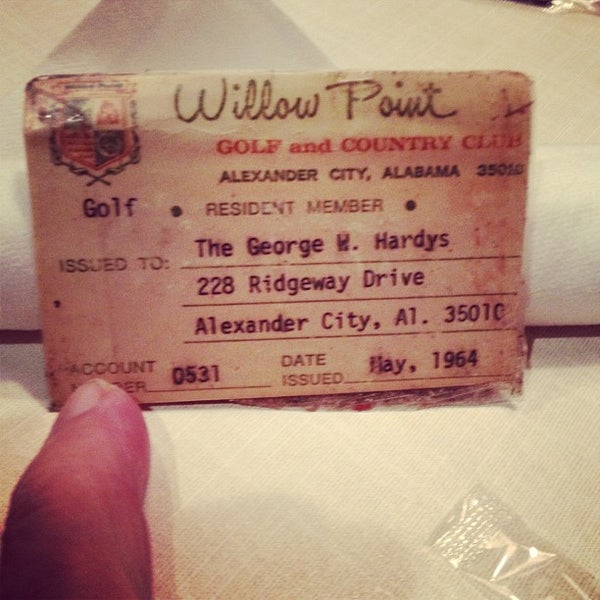 Willow Point
GOLF and COUNTRY CLUB
ALEXANDER CITY, ALABAMA 35010
Golf • RESIDENT MEMBER •
ISSUED TO: The George W. Hardys
228 Ridgeway Drive
Alexander City, Al. 35010
ACCOUNT DATE
0531 ISSUED May, 1964